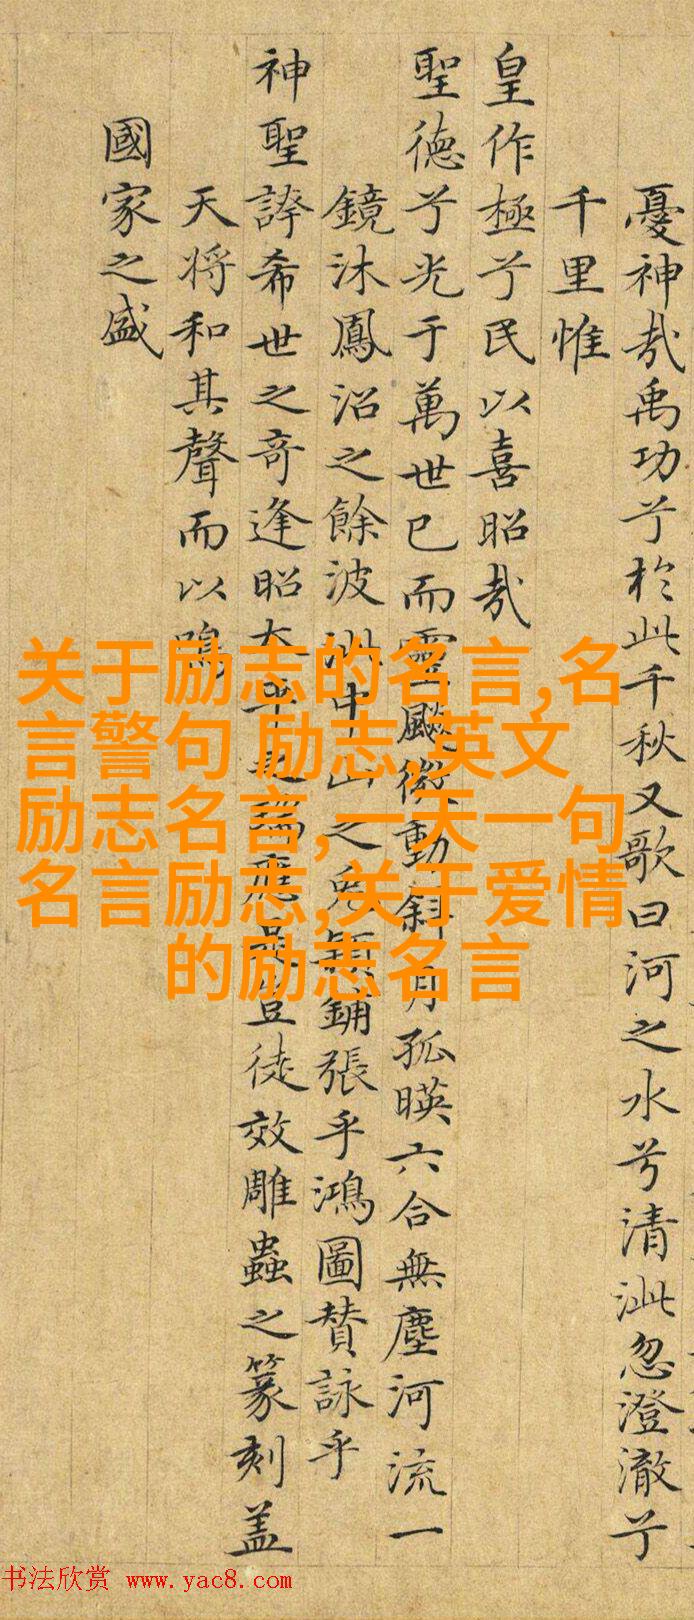 憂神哉禹功兮於此千秋又歌曰河之水兮清泚忽澄澈兮
千里惟
皇作極兮民以喜昭哉
聖德兮光于萬世已而靈飈微動斜月孤暎六合無塵河流一
鏡沐鳳沼之餘波中山之兔穎鋪張乎鴻圖賛詠乎
神聖誇希世之奇逢昭太平之瑞應是豈徒效雕蟲之篆刻盖
天将和其聲而以鳴
國家之盛
关于励志的名言,名
言警句 励志,英文
励志名言,一天一句
名言励志,关于爱情
的励志名言
书法欣赏 www.yac8.com